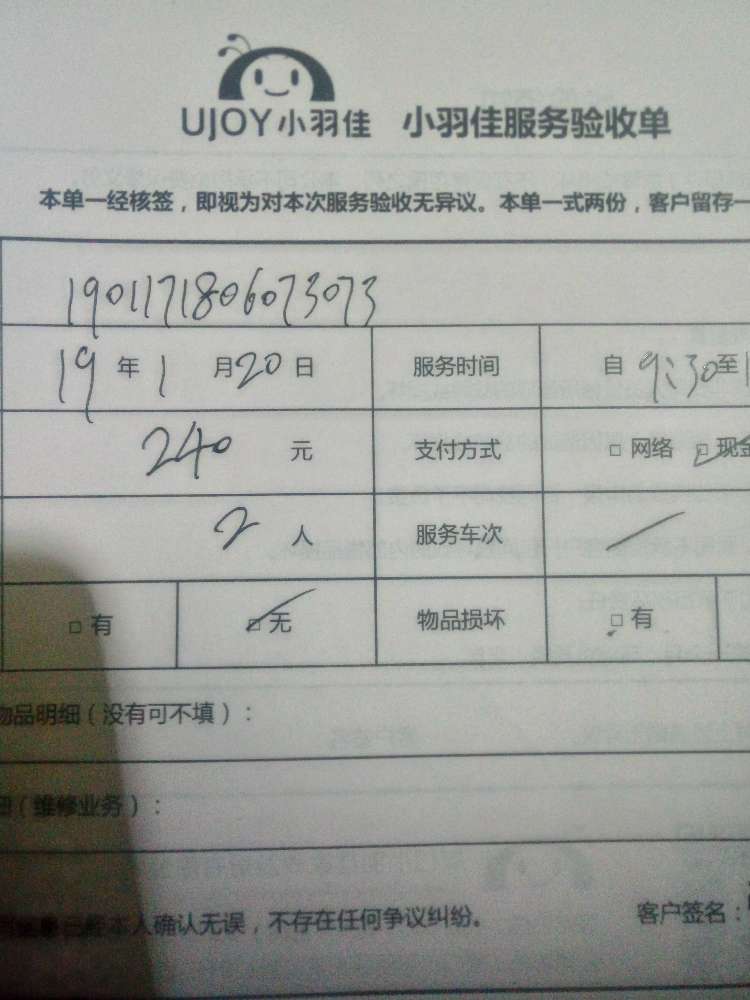 UJOY小羽佳 小羽佳服务验收单
本单一经核签，即视为对本次服务验收无异议。本单一式两份，客户留存一
190117180607​3073
19年1月20日 服务时间 自9:30至1
240元 支付方式 □网络 □现金
2人 服务车次
□有 □无 物品损坏 □有
物品明细（没有可不填）：
细（维修业务）：
已经本人确认无误，不存在任何争议纠纷。 客户签名：